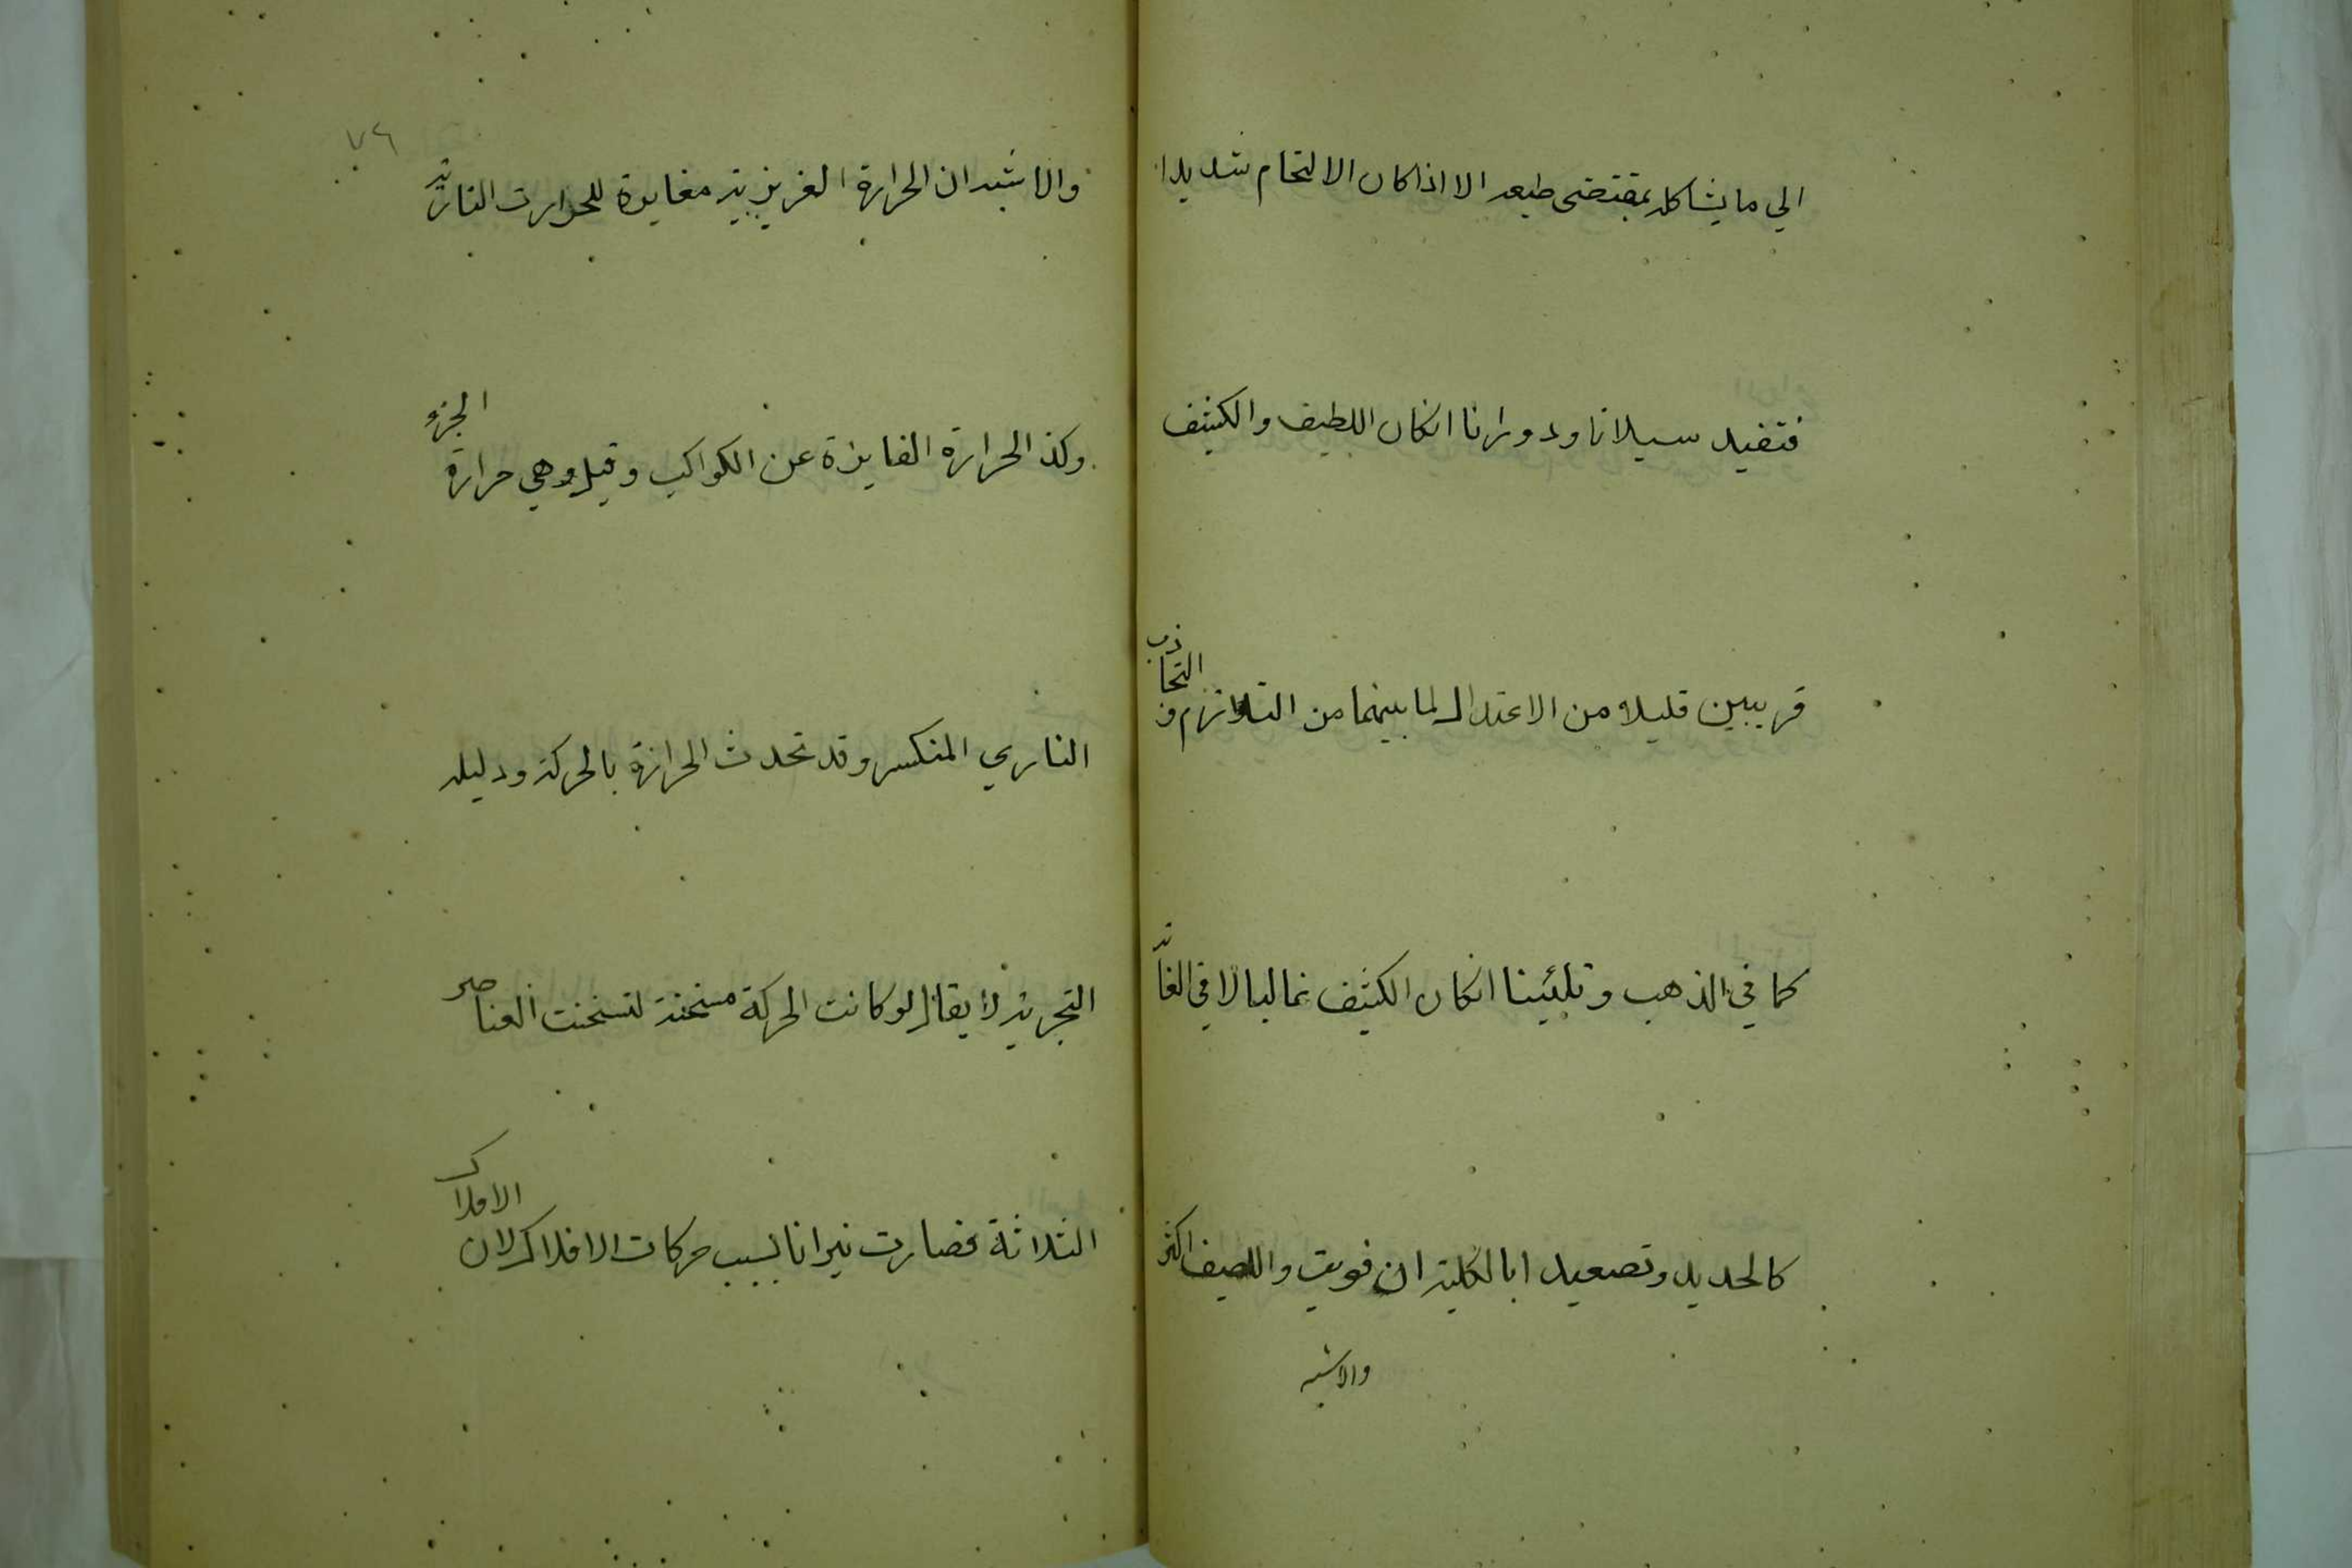 الي ما يشاكله بمقتضى طبعه الا اذا كان الالتحام شديدا
فتفيد سيلانا ودورانا انكان اللطيف والكثيف
قريبين قليلا من الاعتدال لما بينهما من التلازم و التجاذب
كما في الذهب وتليينا انكان الكثيف غالبا لا في الغاية
كالحديد وتصعيدا بالكلية ان قويت واللطيف اكثر
والاشبه
٧٦
والاشبه ان الحرارة الغريزية مغايرة للحرارت النارية
وكذ الحرارة الفايزة عن الكواكب وقيل وهي حرارة الجزء
الناري المنكسر وقد تحدث الحرارة بالحركة ودليله
التجربة لا يقال لو كانت الحركة مسخنة لتسخنت العناصر
الثلاثة فصارت نيرانا بسبب حركات الافلاك لان الافلاك